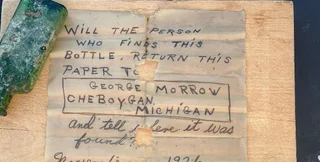 WILL THE PERSON
WHO FINDS THIS
BOTTLE, RETURN THIS
PAPER TO
GEORGE MORROW
CHEBOYGAN,
MICHIGAN
and tell where it was
found?
1926